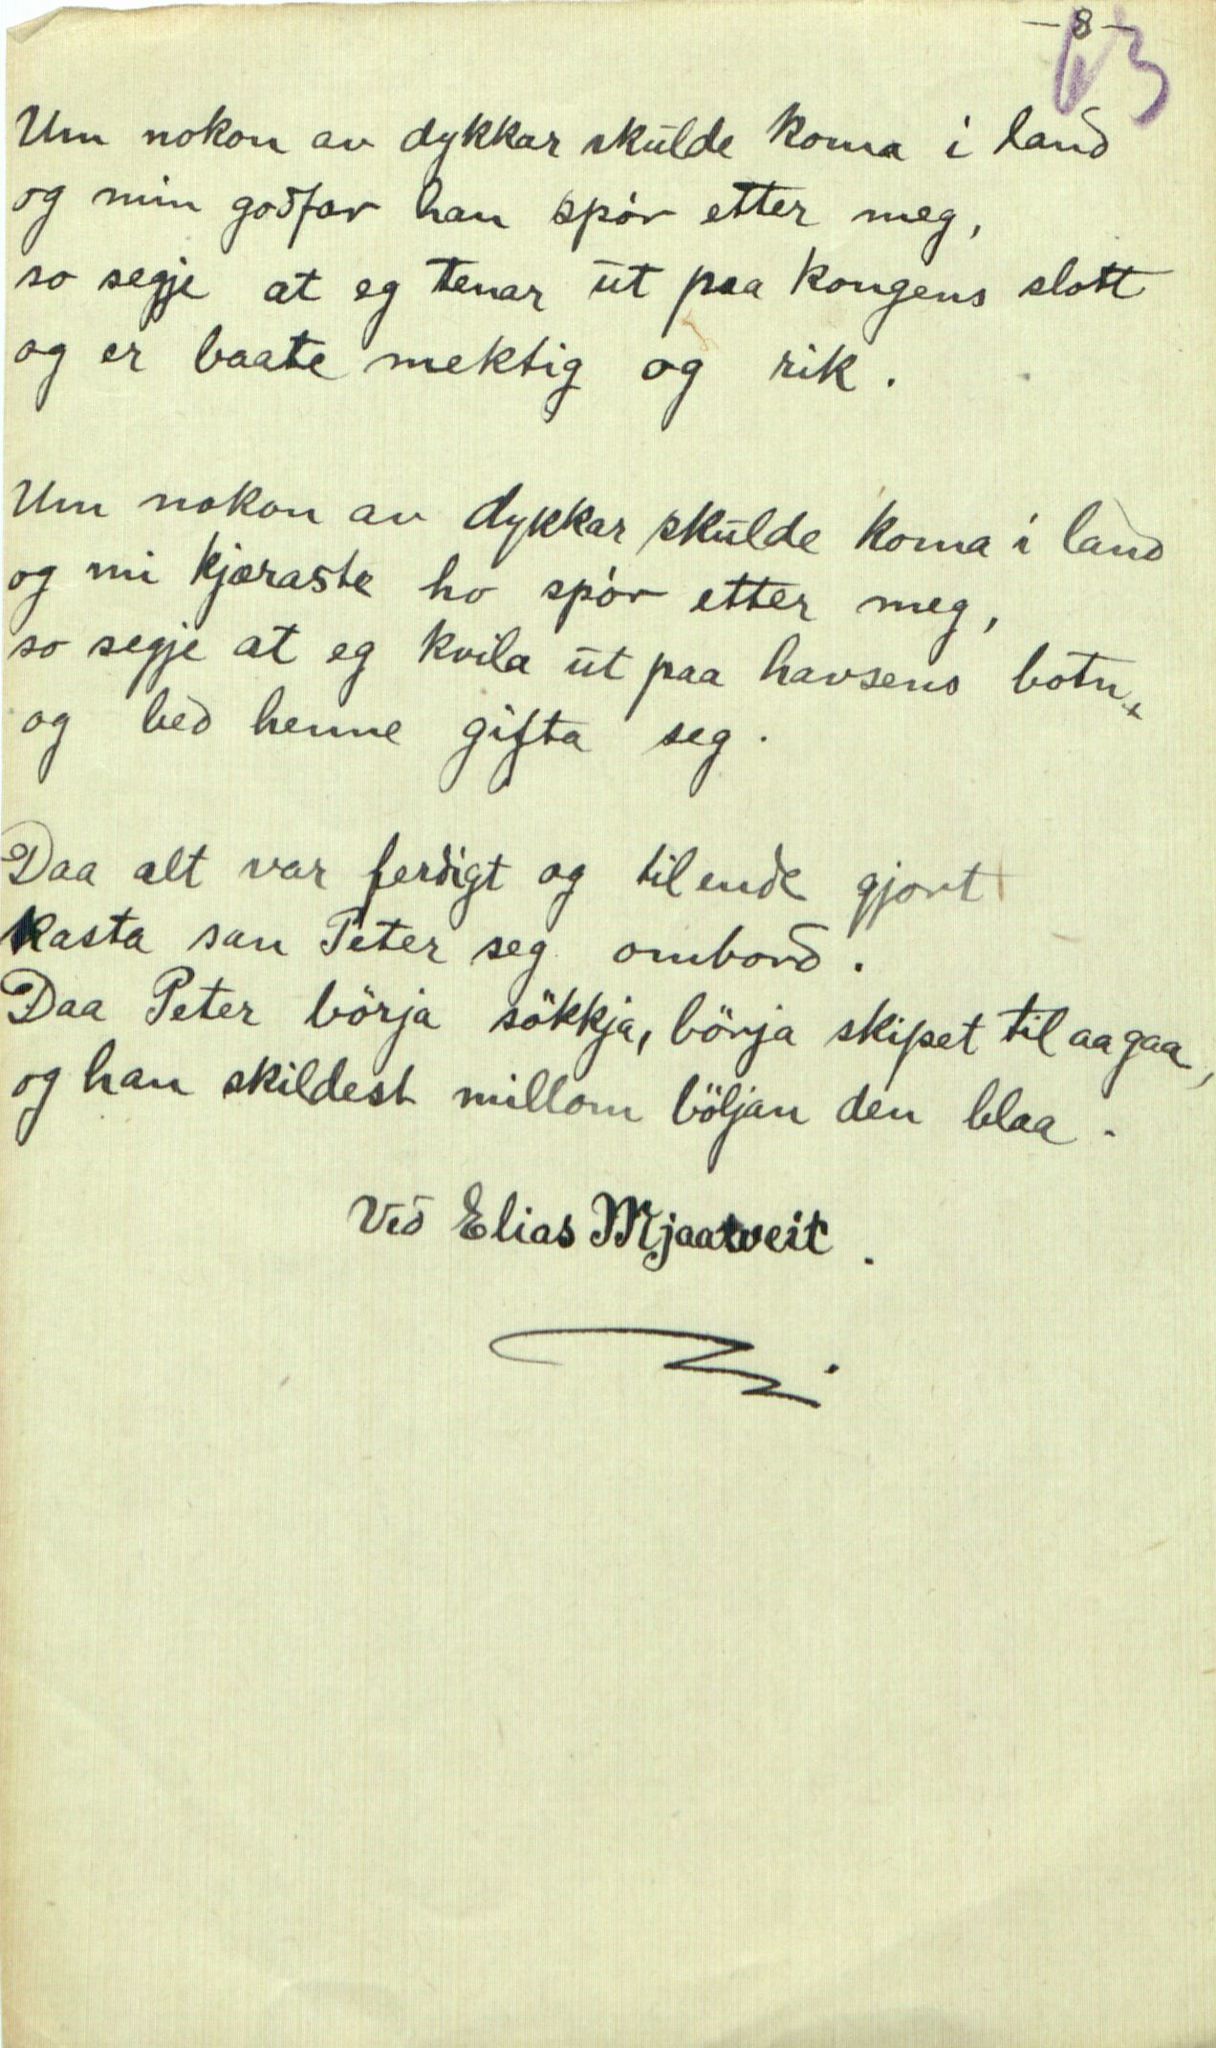 – 8 –
63
Um nokon av dykkar skulde koma i land
og min godfar han spör etter meg,
so segje at eg tenar ut paa kongens slott
og er baate mektig og rik.
Um nokon av dykkar skulde koma i land
og mi kjæraste ho spör etter meg,
so segje at eg kvila ut paa havsens botn,
og bed henne gifta seg.
Daa alt var ferdigt og til ende gjort
kasta san Peter seg ombord.
Daa Peter börja sökkja, börja skipet til aa gaa,
og han skildest millom böljan den blaa.
Ved Elias Mjaatveit.